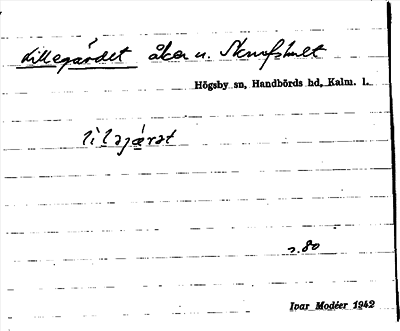 Lillegärdet åker u. Skrufshult
Högsby sn, Handbörds hd, Kalm. l.
lìləjǽrət
2.80
Ivar Modéer 1942